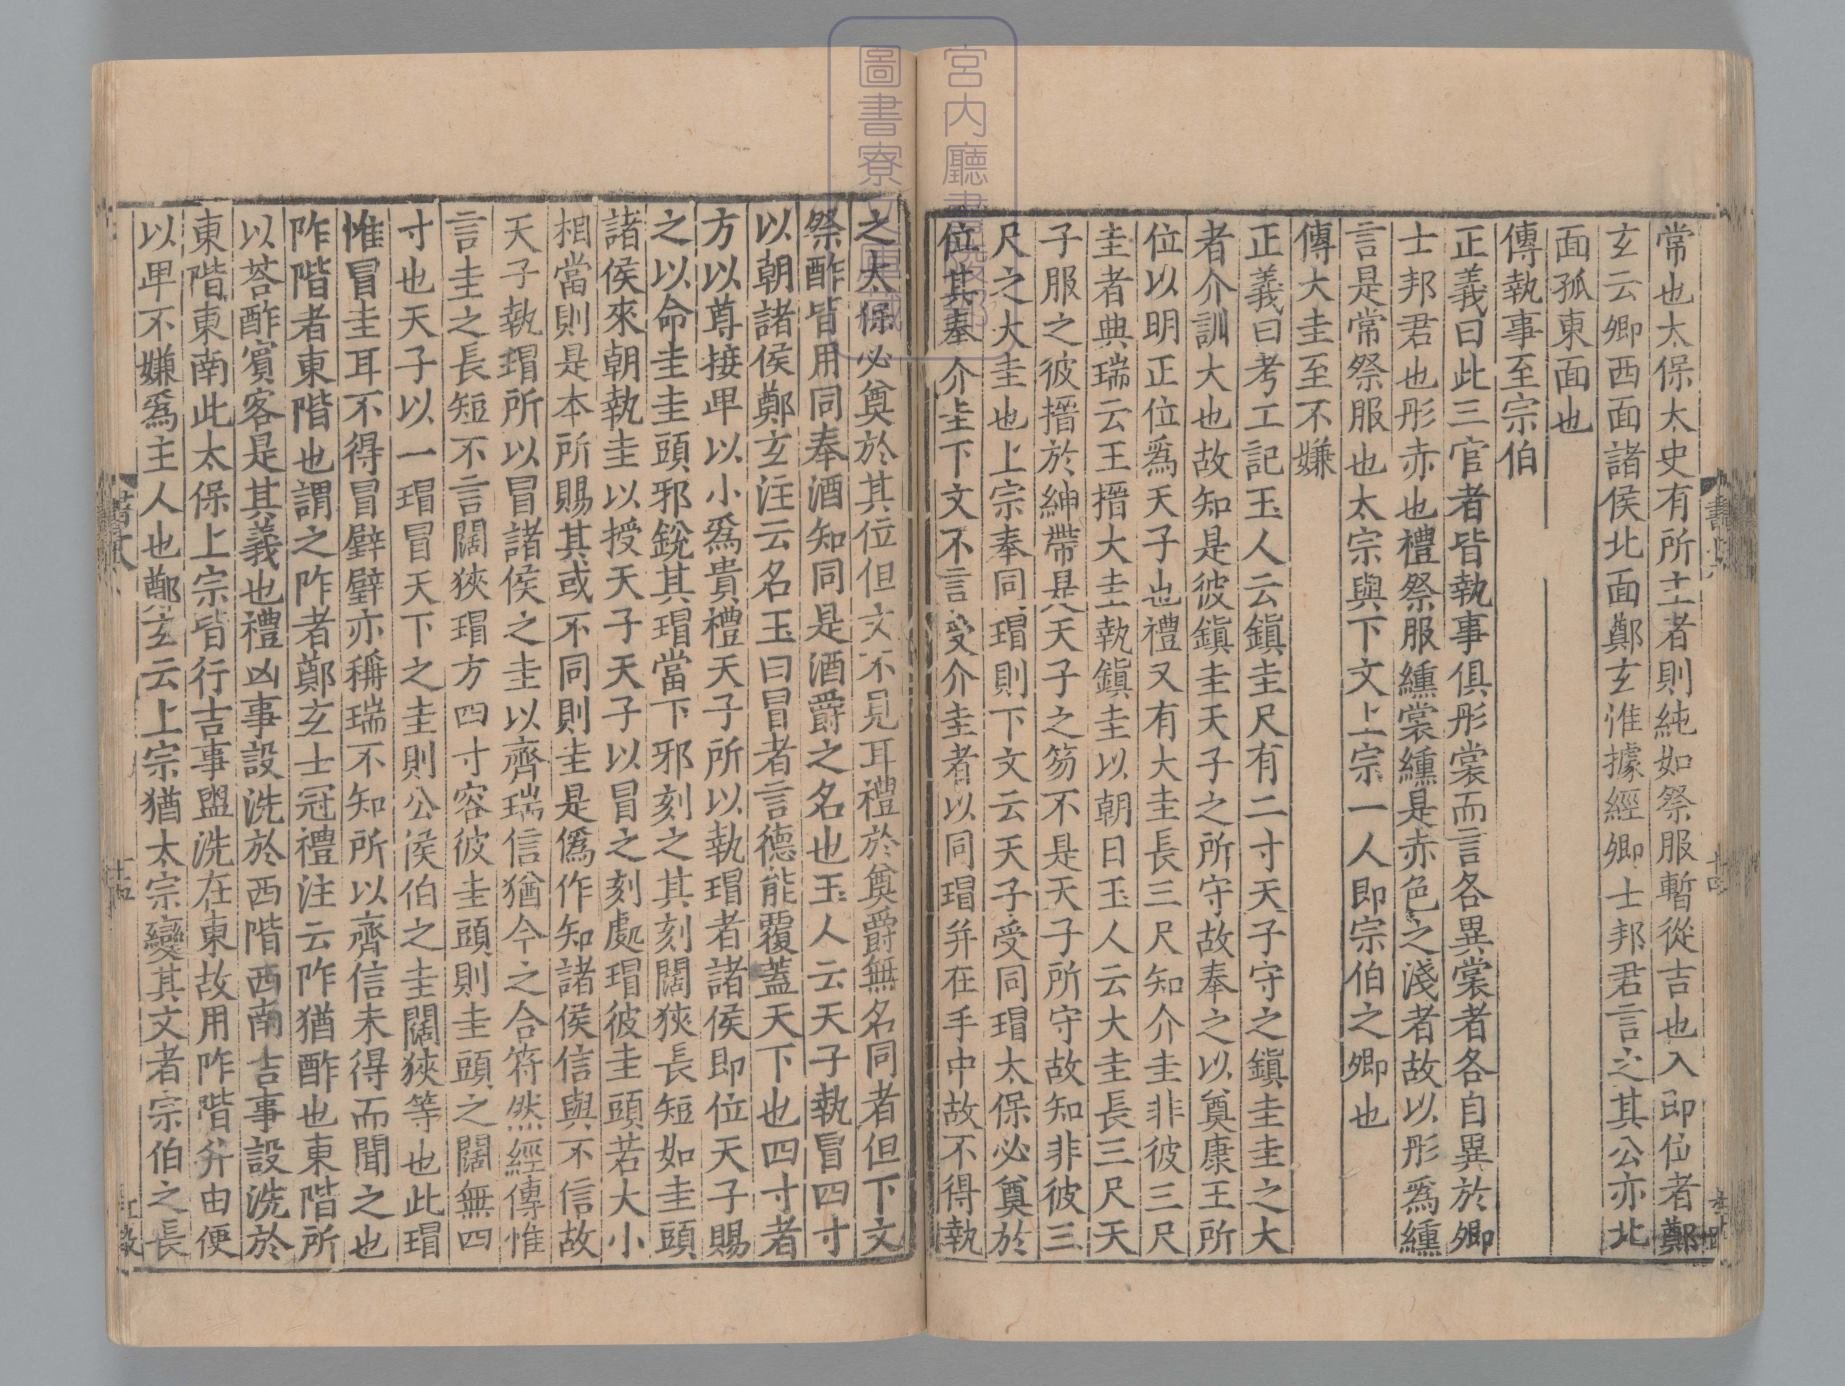 常也太保太史有所主者則純如祭服暫從吉也入即位者鄭
玄云卿西面諸侯北面鄭玄惟據經卿士邦君言之其公亦北
面孤東面也
傳執事至宗伯
正義曰此三官者皆執事俱彤裳而言各異裳者各自異於卿
士邦君也彤赤也禮祭服纁裳纁是赤色之淺者故以彤爲纁
言是常祭服也太宗與下文上宗一人即宗伯之卿也
傳大圭至不嫌
正義曰考工記玉人云鎮圭尺有二寸天子守之鎮圭圭之大
者介訓大也故知是彼鎮圭天子之所守故奉之以奠康王所
位以明正位爲天子也禮又有大圭長三尺知介圭非彼三尺
圭者典瑞云王搢大圭執鎮圭以朝日玉人云大圭長三尺天
子服之彼搢於紳帶是天子之笏不是天子所守故知非彼三
尺之大圭也上宗奉同瑁則下文云天子受同瑁太保必奠於
位其奉介圭下文不言受介圭者以同瑁并在手中故不得執
之太保必奠於其位但文不見耳禮於奠爵無名同者但下文
祭酢皆用同奉酒知同是酒爵之名也玉人云天子執冒四寸
以朝諸侯鄭玄注云名玉曰冒者言德能覆蓋天下也四寸者
方以尊接卑以小爲貴禮天子所以執瑁者諸侯即位天子賜
之以命圭圭頭邪銳其瑁當下邪刻之其刻闊狹長短如圭頭
諸侯來朝執圭以授天子天子以冒之刻處瑁彼圭頭若大小
相當則是本所賜其或不同則圭是僞作知諸侯信與不信故
天子執瑁所以冒諸侯之圭以齊瑞信猶今之合符然經傳惟
言圭之長短不言闊狹瑁方四寸容彼圭頭則圭頭之闊無四
寸也天子以一瑁冒天下之圭則公侯伯之圭闊狹等也此瑁
惟冒圭耳不得冒璧璧亦稱瑞不知所以齊信未得而聞之也
阼階者東階也謂之阼者鄭玄士冠禮注云阼猶酢也東階所
以荅酢賓客是其義也禮凶事設洗於西階西南吉事設洗於
東階東南此太保上宗皆行吉事盥洗在東故用阼階并由便
以卑不嫌爲主人也鄭玄云上宗猶太宗變其文者宗伯之長
宮内廳書陵部
圖書寮文庫藏